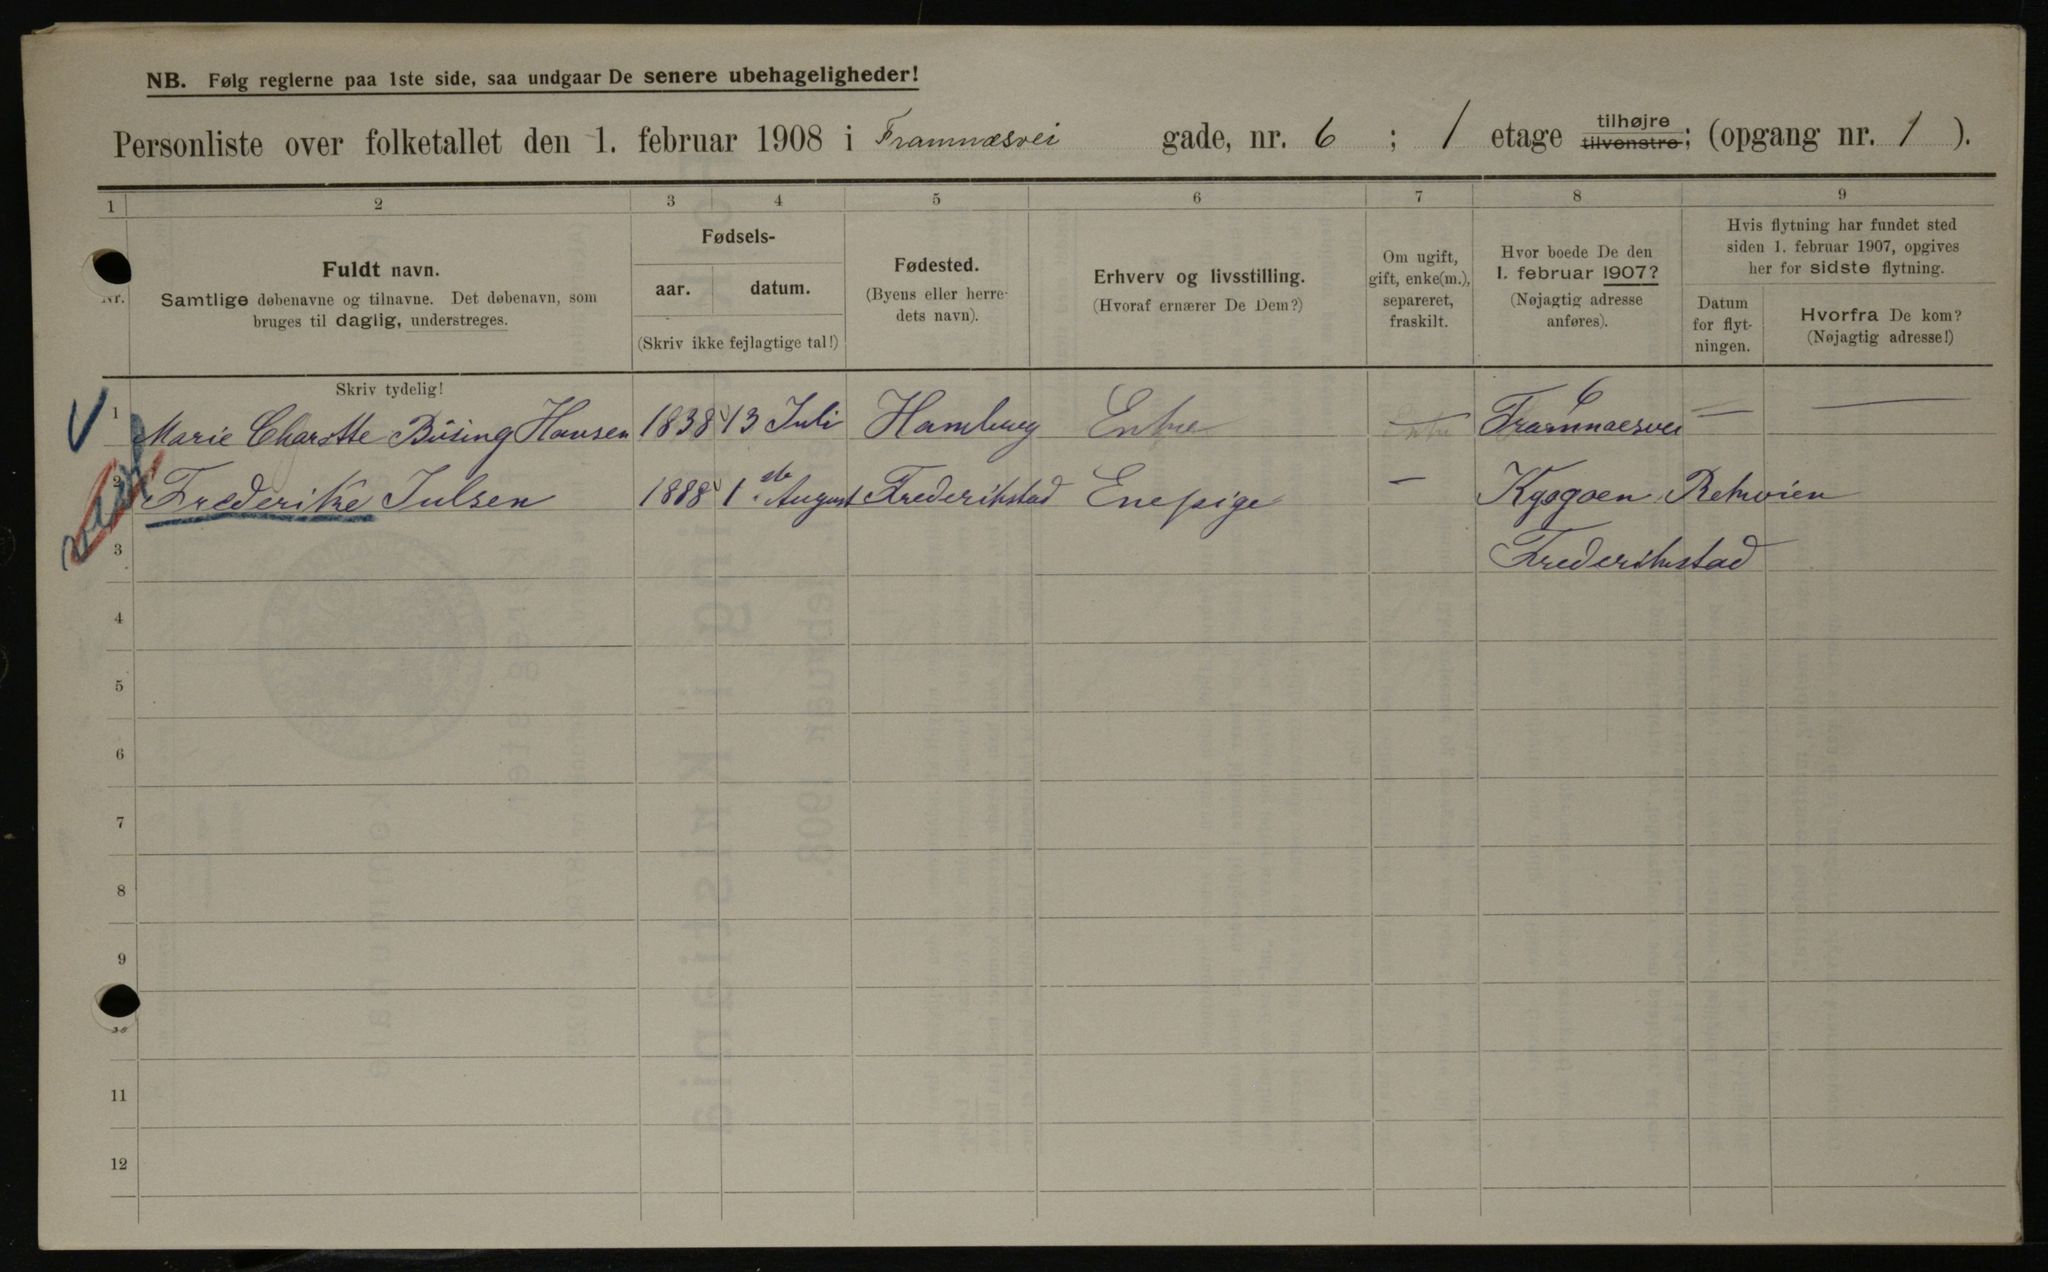 NB. Følg reglerne paa 1ste side, saa undgaar De senere ubehageligheder!
Personliste over folketallet den 1. februar 1908 i Framnæsvei gade, nr. 6 ; 1 etage tilhøjre tilvenstre; (opgang nr. 1 ).
1 2 3 4 5 6 7 8 9
Nr.
Fuldt navn.
Samtlige døbenavne og tilnavne. Det døbenavn, som
bruges til daglig, understreges.
Skriv tydelig!
Fødsels-
aar. datum.
(Skriv ikke fejlagtige tal!)
Fødested.
(Byens eller herre-
dets navn).
Erhverv og livsstilling.
(Hvoraf ernærer De Dem?)
Om ugift,
gift, enke(m.),
separeret,
fraskilt.
Hvor boede De den
1. februar 1907?
(Nøjagtig adresse
anføres).
Hvis flytning har fundet sted
siden 1. februar 1907, opgives
her for sidste flytning.
Datum
for flyt-
ningen.
Hvorfra De kom?
(Nøjagtig adresse!)
1 Marie Charotte Büsing Hansen 1838 13 Juli Hamburg Enke — 6 Framnaesvei — —
2 Frederike Julsen 1888 1ste August Frederikstad Enepige —
3 Frederikstad
4
5
6
7
8
9
10
11
12